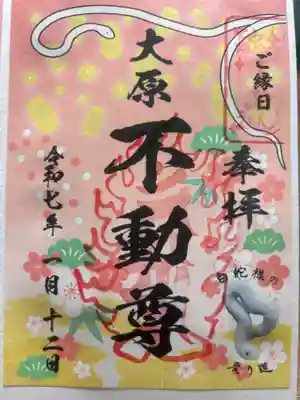 ご縁日
奉拝
大原
不動尊
令和七年 一月 十二日
白蛇様の
通り道